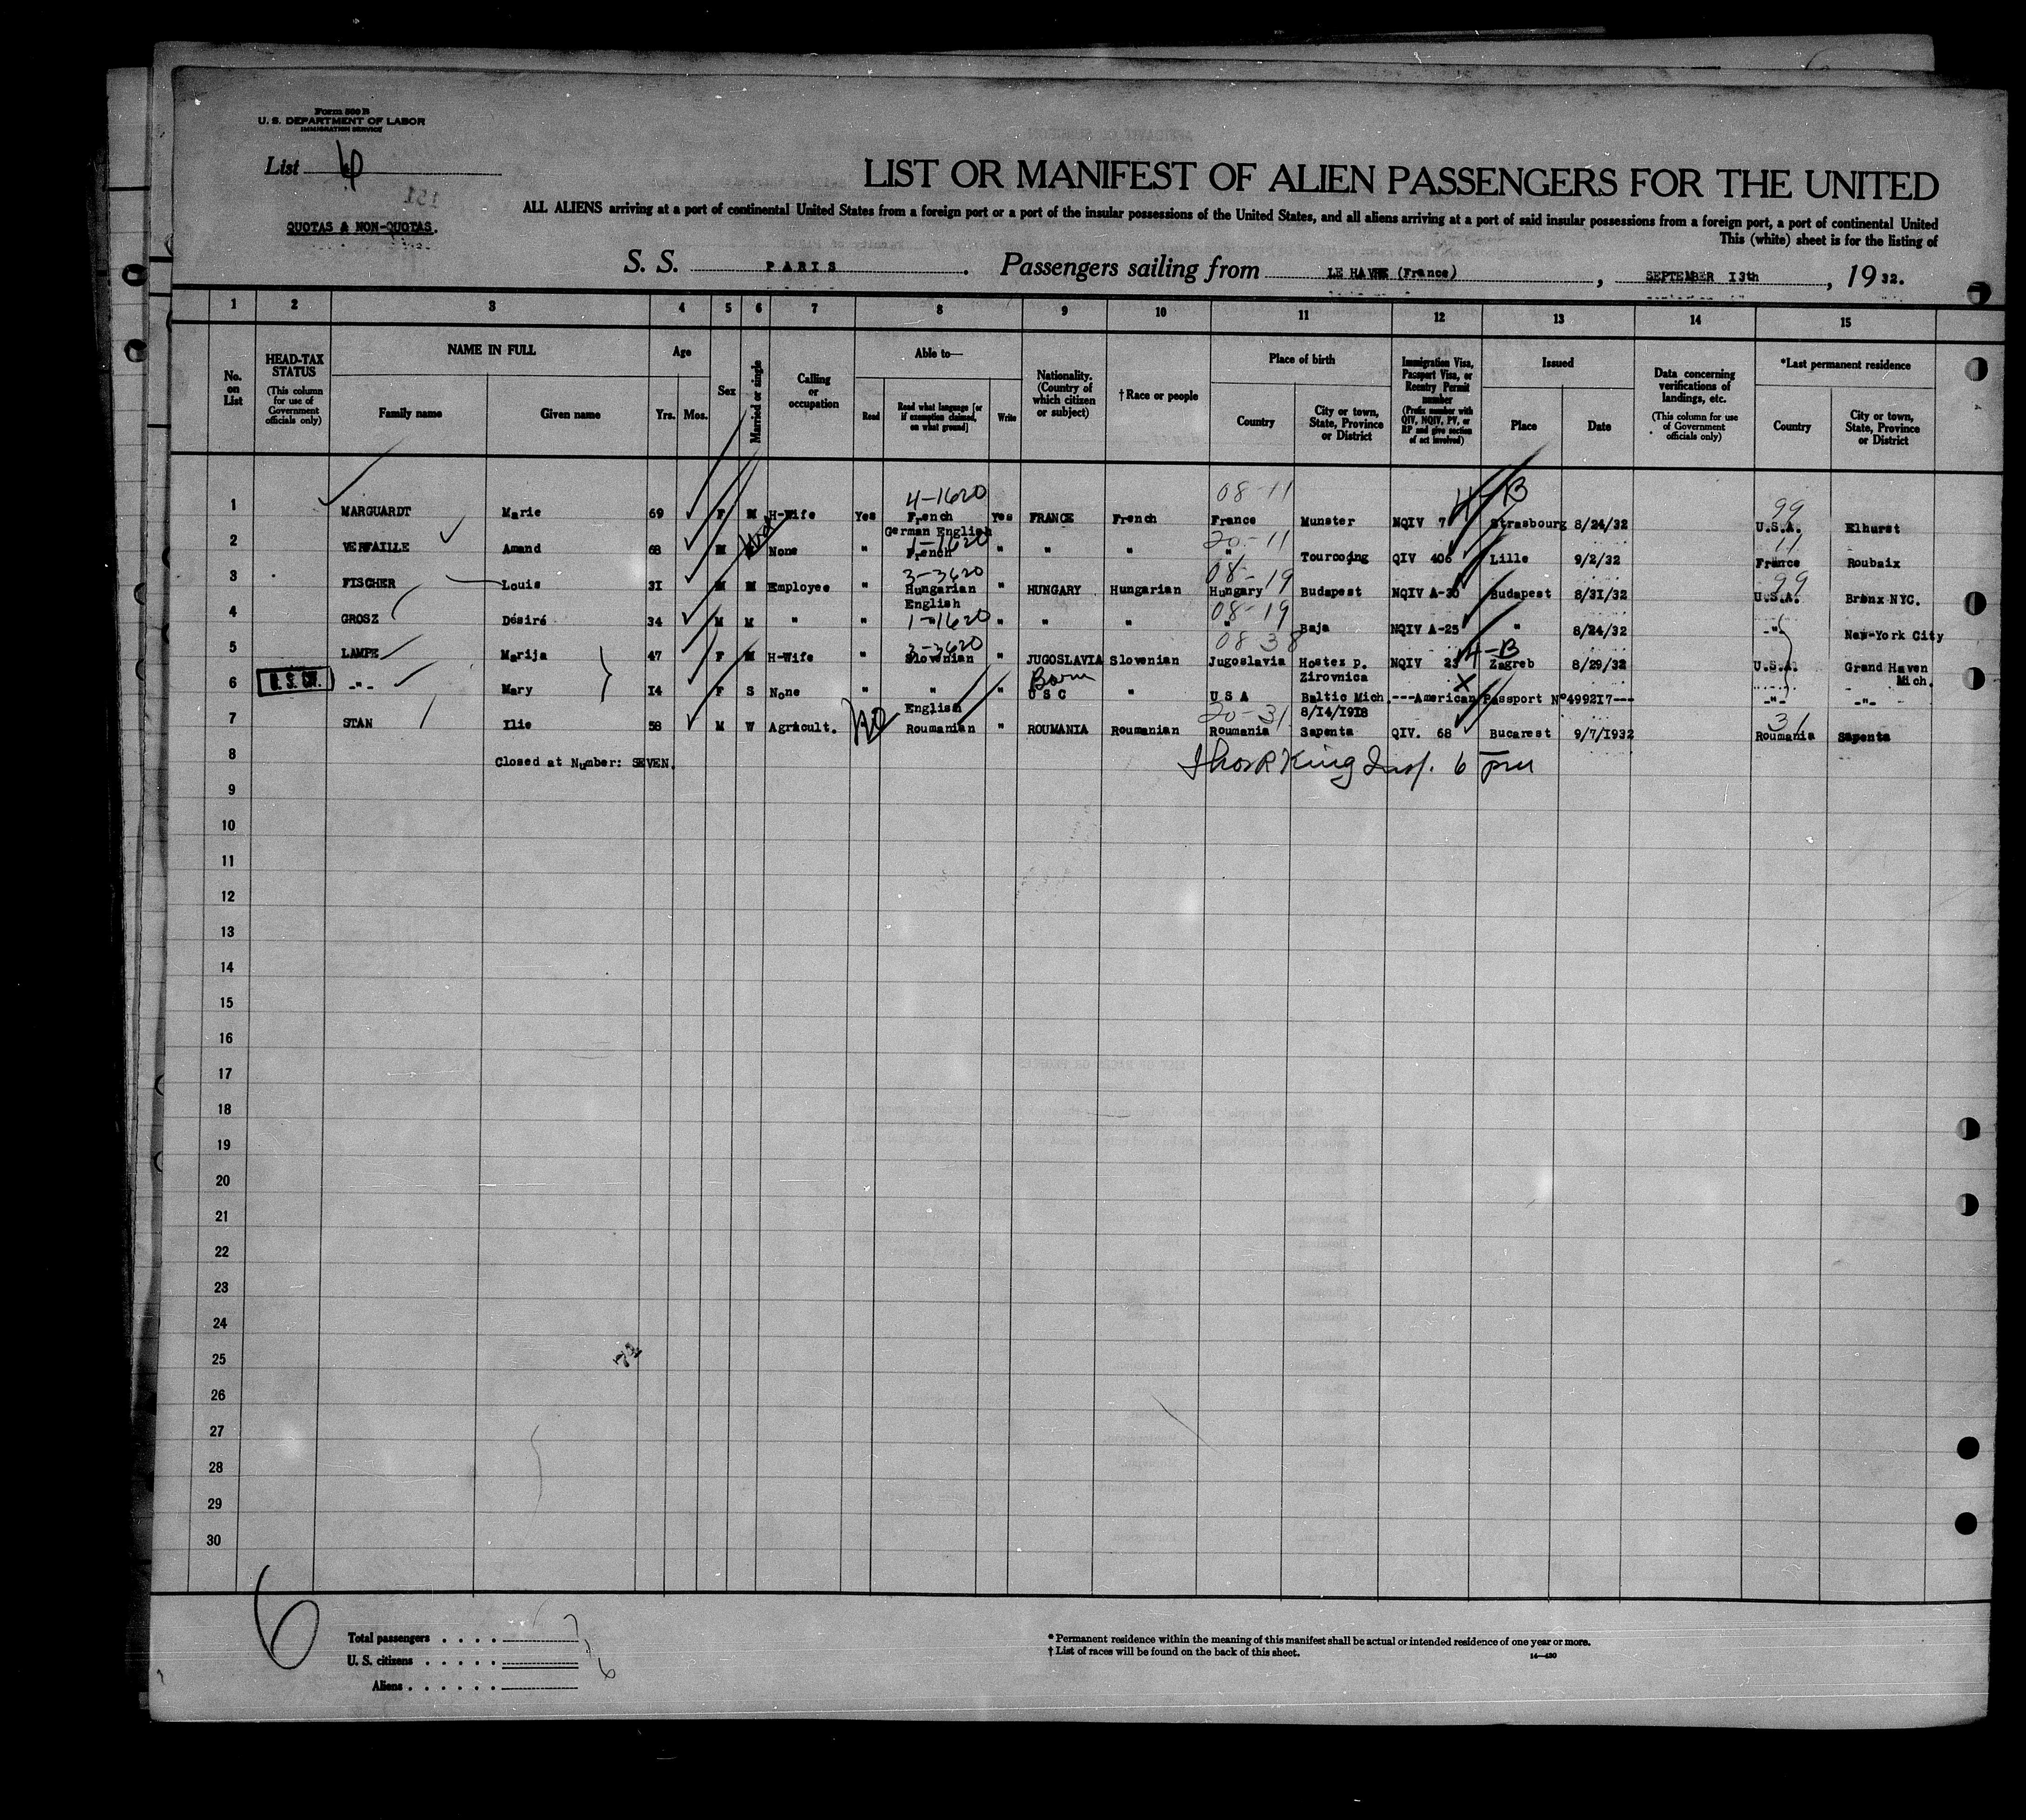 Form 500 B
U. S. DEPARTMENT OF LABOR
IMMIGRATION SERVICE
List 6
151
QUOTAS & NON-QUOTAS.
LIST OR MANIFEST OF ALIEN PASSENGERS FOR THE UNITED
ALL ALIENS arriving at a port of continental United States from a foreign port or a port of the insular possessions of the United States, and all aliens arriving at a port of said insular possessions from a foreign port, a port of continental United
This (white) sheet is for the listing of
S. S. PARIS. Passengers sailing from LE HAVRE (France), SEPTEMBER 13th, 1932.
1 2 3 4 5 6 7 8 9 10 11 12 13 14 15
No. on List
HEAD-TAX STATUS (This column for use of Government officials only)
NAME IN FULL
Family name
Given name
Age
Yrs. Mos.
Sex
Married or single
Calling or occupation
Able to—
Read
Read what language [or if exemption claimed, on what ground]
Write
Nationality. (Country of which citizen or subject)
† Race or people
Place of birth
Country
City or town, State, Province or District
Immigration Visa, Passport Visa, or Reentry Permit number (Prefix number with QIV, NQIV, PV, or RP and give section of act involved)
Issued
Place
Date
Data concerning verifications of landings, etc. (This column for use of Government officials only)
*Last permanent residence
Country
City or town, State, Province or District
4-1620 08-11 4-B 99
1 MARGUARDT Marie 69 F M H-Wife Yes French Yes FRANCE French France Munster NQIV 7 Strasbourg 8/24/32 U.S.A. Elhurst
German English
1-1620 20-11 11
2 VERFAILLE Amand 68 M None " French " " " " Tourcoing QIV 406 Lille 9/2/32 France Roubaix
3-3620 08-19 99
3 FISCHER Louis 31 M M Employee " Hungarian " HUNGARY Hungarian Hungary Budapest NQIV A-30 Budapest 8/31/32 U.S.A. Bronx NYC.
English
1-1620 08-19
4 GROSZ Désiré 34 M M " " " " " " " Baja NQIV A-25 " 8/24/32 -"- New-York City
3-3620 08 38 4-B
5 LAMPE Marija 47 F M H-Wife " Slovenian " JUGOSLAVIA Slovenian Jugoslavia Hostez p. NQIV 23 Zagreb 8/29/32 U.S.A. Grand Haven
Zirovnica Mich.
Born X
6 U. S. CIT. -"- Mary 14 F S None " " " U S C " U S A Baltic Mich. ---American Passport N°499217--- -"- -"-
English 8/14/1918
20-31 31
7 STAN Ilie 58 M W Agricult. No Roumanian " ROUMANIA Roumanian Roumania Sapenta QIV. 68 Bucarest 9/7/1932 Roumania Sapenta
8 Closed at Number: SEVEN. Thos R King Insp. 6 pm
9
10
11
12
13
14
15
16
17
18
19
20
21
22
23
24
25
26
27
28
29
30
6
Total passengers . . . . 7
U. S. citizens . . . . . 1
Aliens . . . . . . 6
* Permanent residence within the meaning of this manifest shall be actual or intended residence of one year or more.
† List of races will be found on the back of this sheet.
14—430